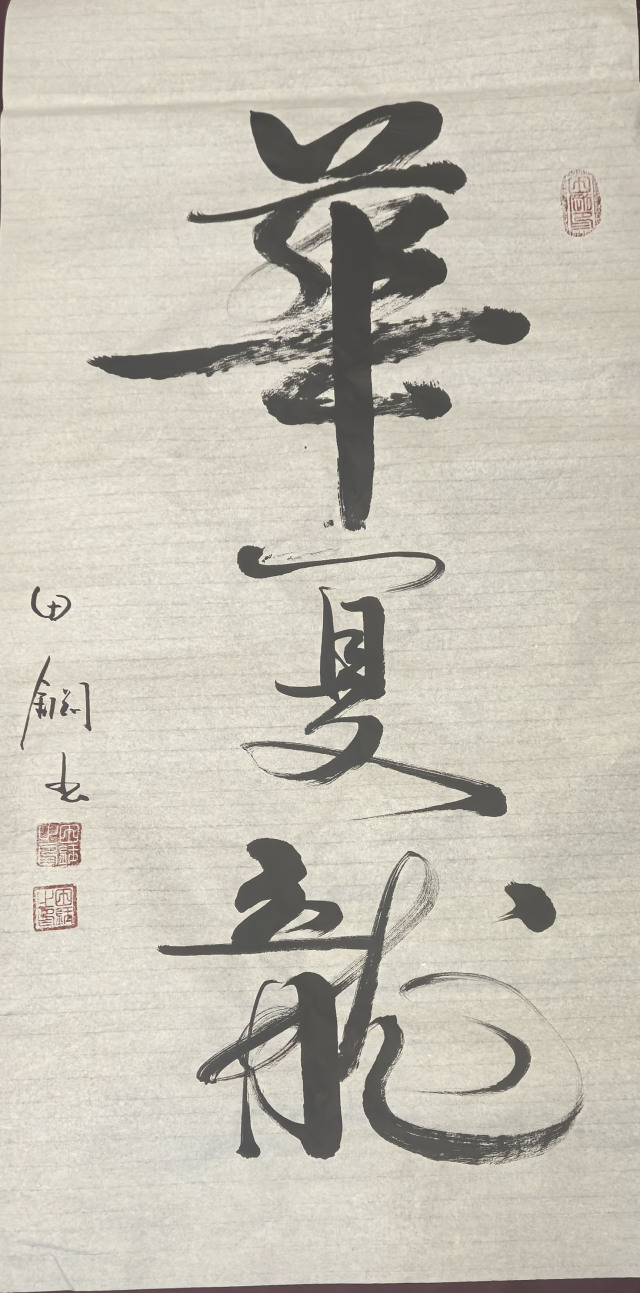 華夏龍
田鋼书